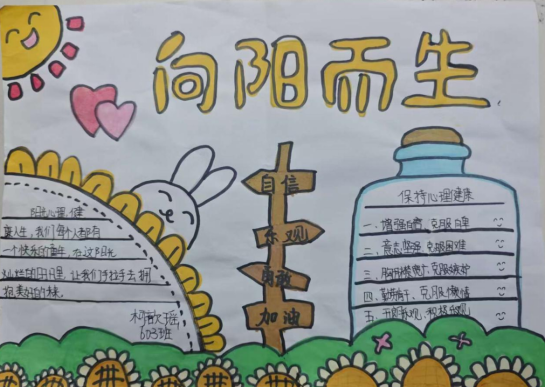 向阳而生
阳光心理,健
康人生,我们每个人都有
一个快乐的童年,在这阳光
灿烂的日子里,让我们手拉手去拥
抱美好的未来。
柯歆瑶
603班
自信
乐观
勇敢
加油
保持心理健康
一、增强自信,克服自卑
二、意志坚强,克服困难
三、胸怀宽广,克服嫉妒
四、勤奋肯干、克服懒惰
五、开朗乐观、积极